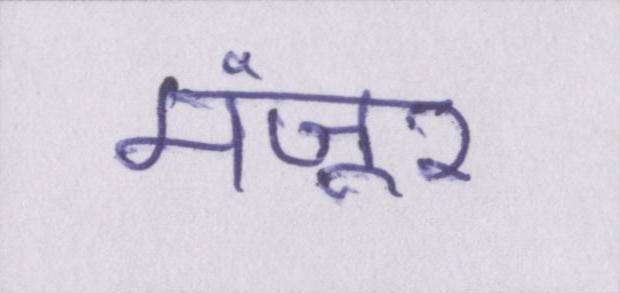 मंजूर